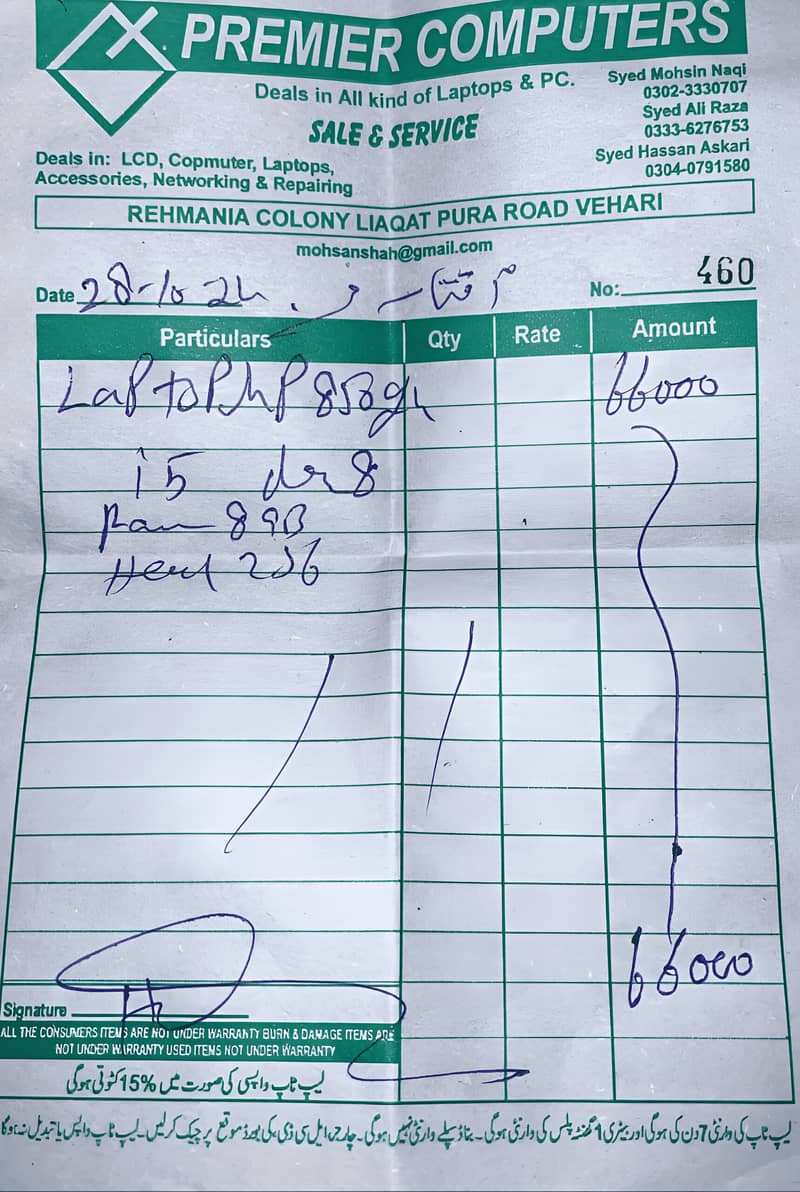 PREMIER COMPUTERS
Deals in All kind of Laptops & PC.
SALE & SERVICE
Syed Mohsin Naqi
0302-3330707
Syed Ali Raza
0333-6276753
Syed Hassan Askari
0304-0791580
Deals in: LCD, Copmuter, Laptops,
Accessories, Networking & Repairing
REHMANIA COLONY LIAQAT PURA ROAD VEHARI
mohsanshah@gmail.com
Date 28-10-24
No: 460
Particulars Qty Rate Amount
LaPtoP hP 850g4 66000
i5
Ram 8 GB
Hard 256
66000
Signature
ALL THE CONSUMERS ITEMS ARE NOT UNDER WARRANTY BURN & DAMAGE ITEMS ARE
NOT UNDER WARRANTY USED ITEMS NOT UNDER WARRANTY
لیپ ٹاپ واپسی کی صورت میں 15% کٹوتی ہوگی
لیپ ٹاپ کی وارنٹی 7 دن کی ہوگی اور بیٹری 1 گھنٹہ پلس کی وارنٹی ہوگی۔ وارنٹی نہیں ہوگی۔ چارجر، ایل سی ڈی، کی بورڈ موقع پر چیک کرلیں۔ لیپ ٹاپ واپس یا تبدیل نہ ہوگا